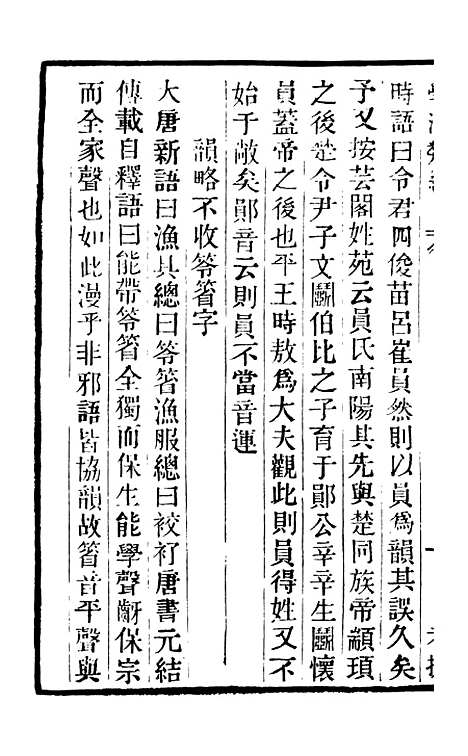 時語曰令君四俊苗呂崔員然則以員爲韻其誤久矣
予又按芸閣姓苑云員氏南陽其先與楚同族帝顓頊
之後楚令尹子文鬭伯比之子育于鄖公辛辛生鬭懷
員蓋帝之後也平王時敖爲大夫觀此則員得姓又不
始于敵矣鄖音云則員不當音運
韻略不收笭箵字
大唐新語曰漁具總曰笭箵漁服總曰䘨衦唐書元結
傳載自釋語曰能帶笭箵全獨而保生能學聲齖保宗
而全家聲也如此漫乎非邪語皆協韻故箵音平聲與